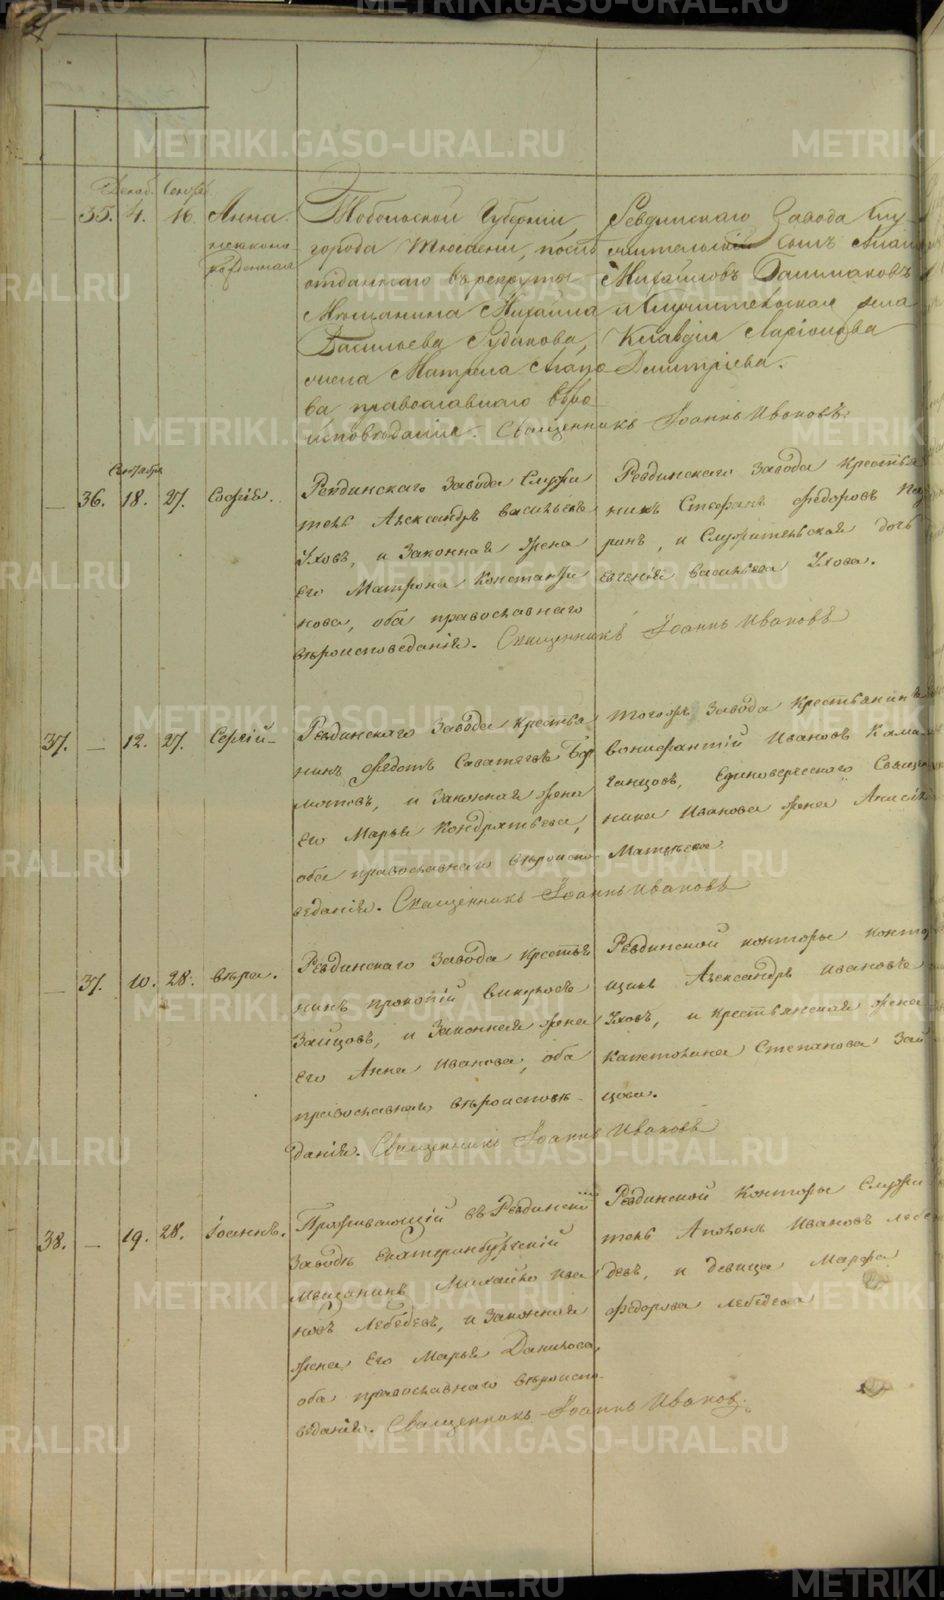 Декаб. Сентяб
35. 4. 16. Анна
незаконо
рожденная
Тобольской Губернии,
города Тюмени, после
отданнаго въ рекруты
Мещанина Михаила
Васильева Рудакова,
жена Матрена
ва православнаго вѣро
исповѣдания. Священникъ Іоаннъ Ивановъ.
Ревдинскаго Завода
сынъ
Михайловъ Башмаковъ
и жена
Клавдия Ларіонова
Дмитріева.
Сентября
36. 18. 27. Софія.
Ревдинскаго Завода Служи
тель Александръ Васильевъ
Уховъ, и Законная Жена
Его Матрона Константи
нова, оба православнаго
вѣроисповеданія. Священникъ Іоаннъ Ивановъ
Ревдинскаго Завода Крестья
нинъ Стефанъ Федоровъ
ринъ, и Служительская дочь
Евгенія Васильева Ухова.
37. — 12. 27. Сергій
Ревдинскаго Завода Крестья
нинъ Федотъ Саватеевъ Бор
мотовъ, и Законная Жена
Его Марья Кондратьева,
оба православнаго вѣроиспо
веданія. Священникъ Іоаннъ Ивановъ
Тогожъ Завода Крестьянинъ
Вонифантій Ивановъ Кама
ганцовъ, Единоверческого Свяще
ника Иванова Жена
Матвѣева
— 37. 10. 28. Вѣра.
Ревдинскаго Завода Крестья
нинъ Прокопій Викуловъ
Зайцовъ, и Законная Жена
Его Анна Иванова, оба
православнаго вѣроисповѣ-
данія. Священникъ Іоаннъ Ивановъ
Ревдинской конторы конто
щикъ Александръ Ивановъ
Уховъ, и Крестьянская Жена
Капитолина Степанова Зай
цова.
38. — 19. 28. Іоаннъ.
Проживающій въ Ревдинскомъ
Заводѣ Екатеринбургскій
Мещанинъ Михайло Ива
новъ Лебедевъ, и Законная
Жена Его Марья Данилова,
оба православнаго вѣроиспо
веданія. Священникъ Іоаннъ Ивановъ.
Ревдинской Конторы Служи
тель Аполонъ Ивановъ Лебе
девъ, и девица Марфа
Федорова Лебедева
METRIKI.GASO-URAL.RU